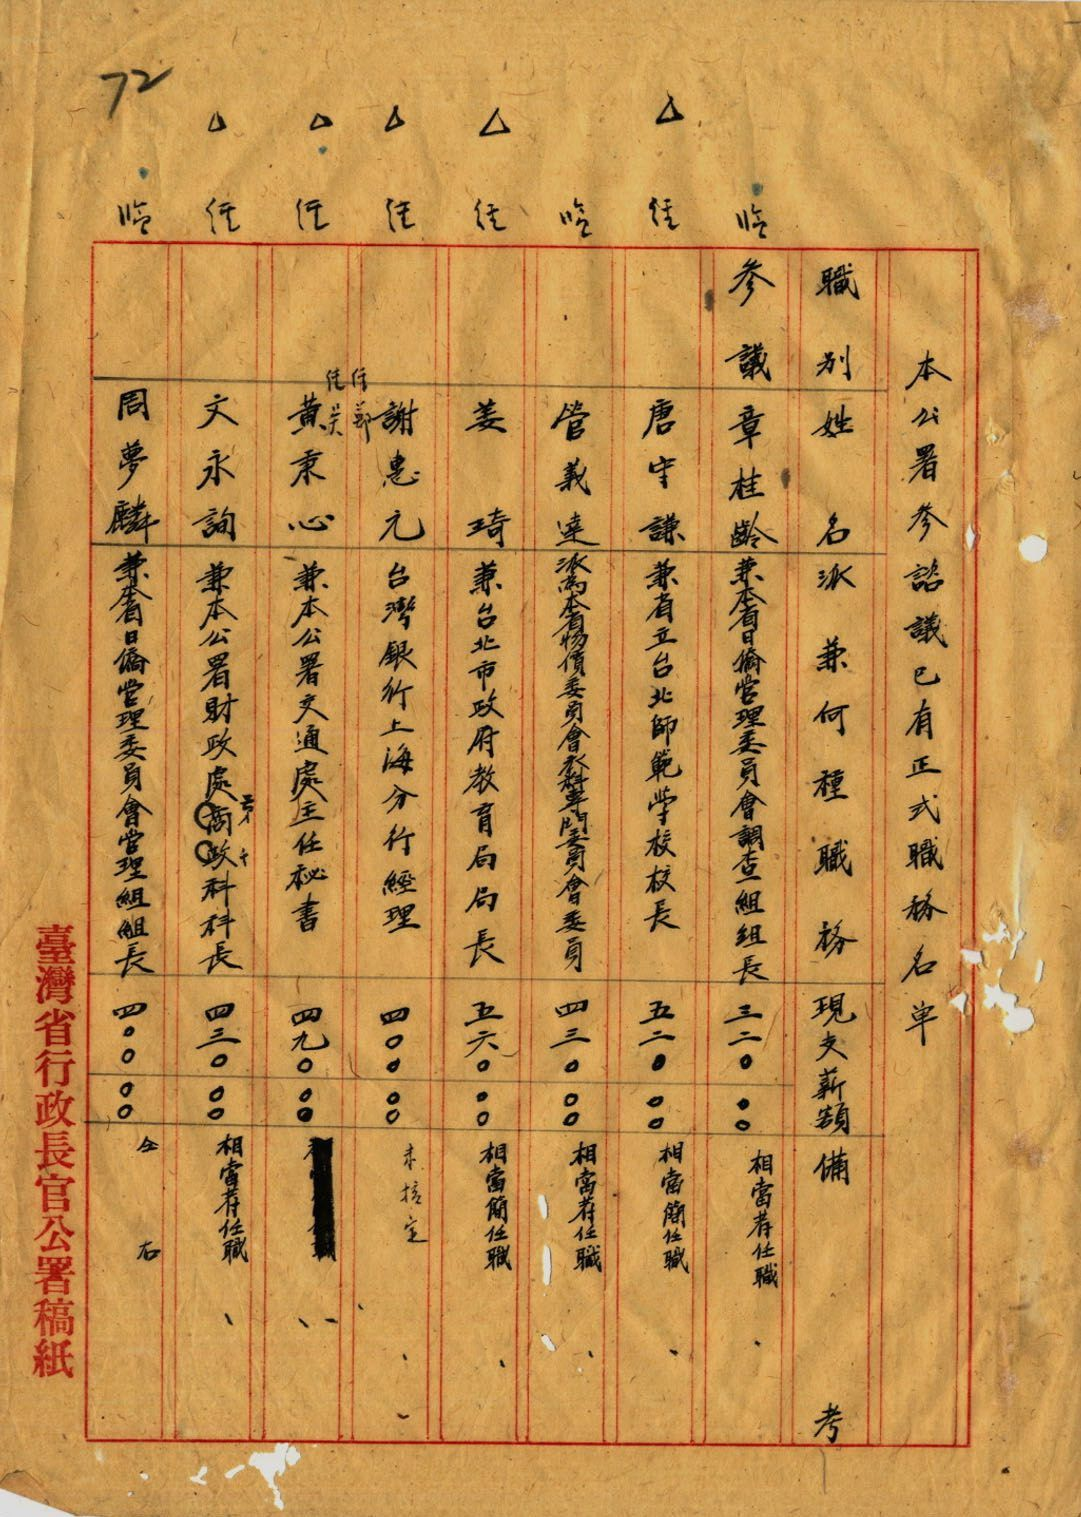 72
本公署參諮議已有正式職務名單
職別 姓名 派兼何種職務 現支薪額 備考
臨 參議 章桂齡 兼本省日僑管理委員會調查組組長 三二〇〇〇 相當荐任職
△ 任 唐守謙 兼省立台北師範學校校長 五二〇〇〇 相當簡任職
臨 管義達 派為本省物價委員會衣料專門委員會委員 四三〇〇〇 相當荐任職
△ 任 姜琦 兼台北市政府教育局局長 五六〇〇〇 相當簡任職
△ 任 謝惠元 台灣銀行上海分行經理 四〇〇〇〇 未核定
△ 任 黃秉心 兼本公署交通處主任秘書 四九〇〇〇
△ 任 文永詢 兼本公署財政處商政科科長 四三〇〇〇 相當荐任職
臨 周夢麟 兼本省日僑管理委員會管理組組長 四〇〇〇〇 仝右
臺灣省行政長官公署稿紙